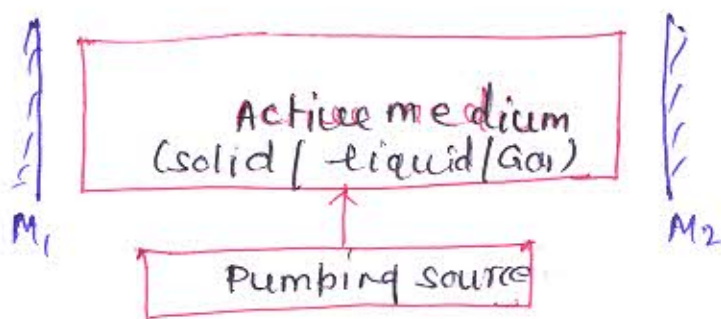 Active medium
(solid / liquid/Gas)
M1 M2
Pumping source